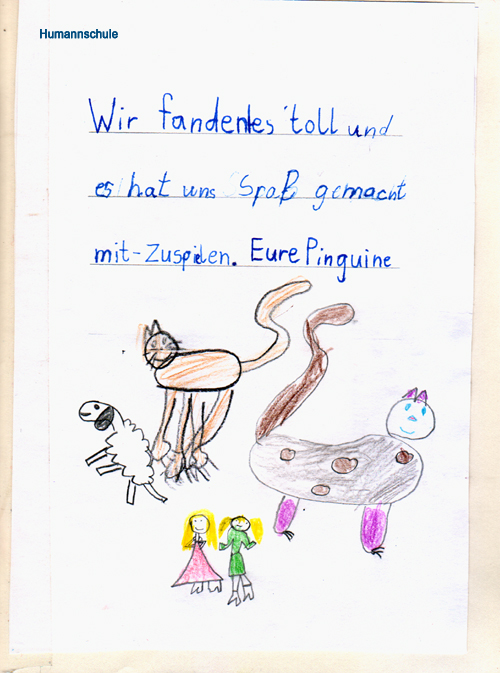 Humannschule
Wir fanden es toll und
es hat uns Spaß gemacht
mit-zuspielen. Eure Pinguine